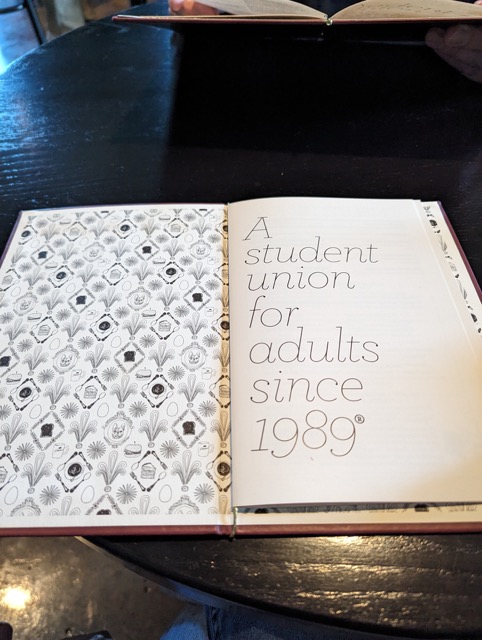 A
student
union
for
adults
since
1989®